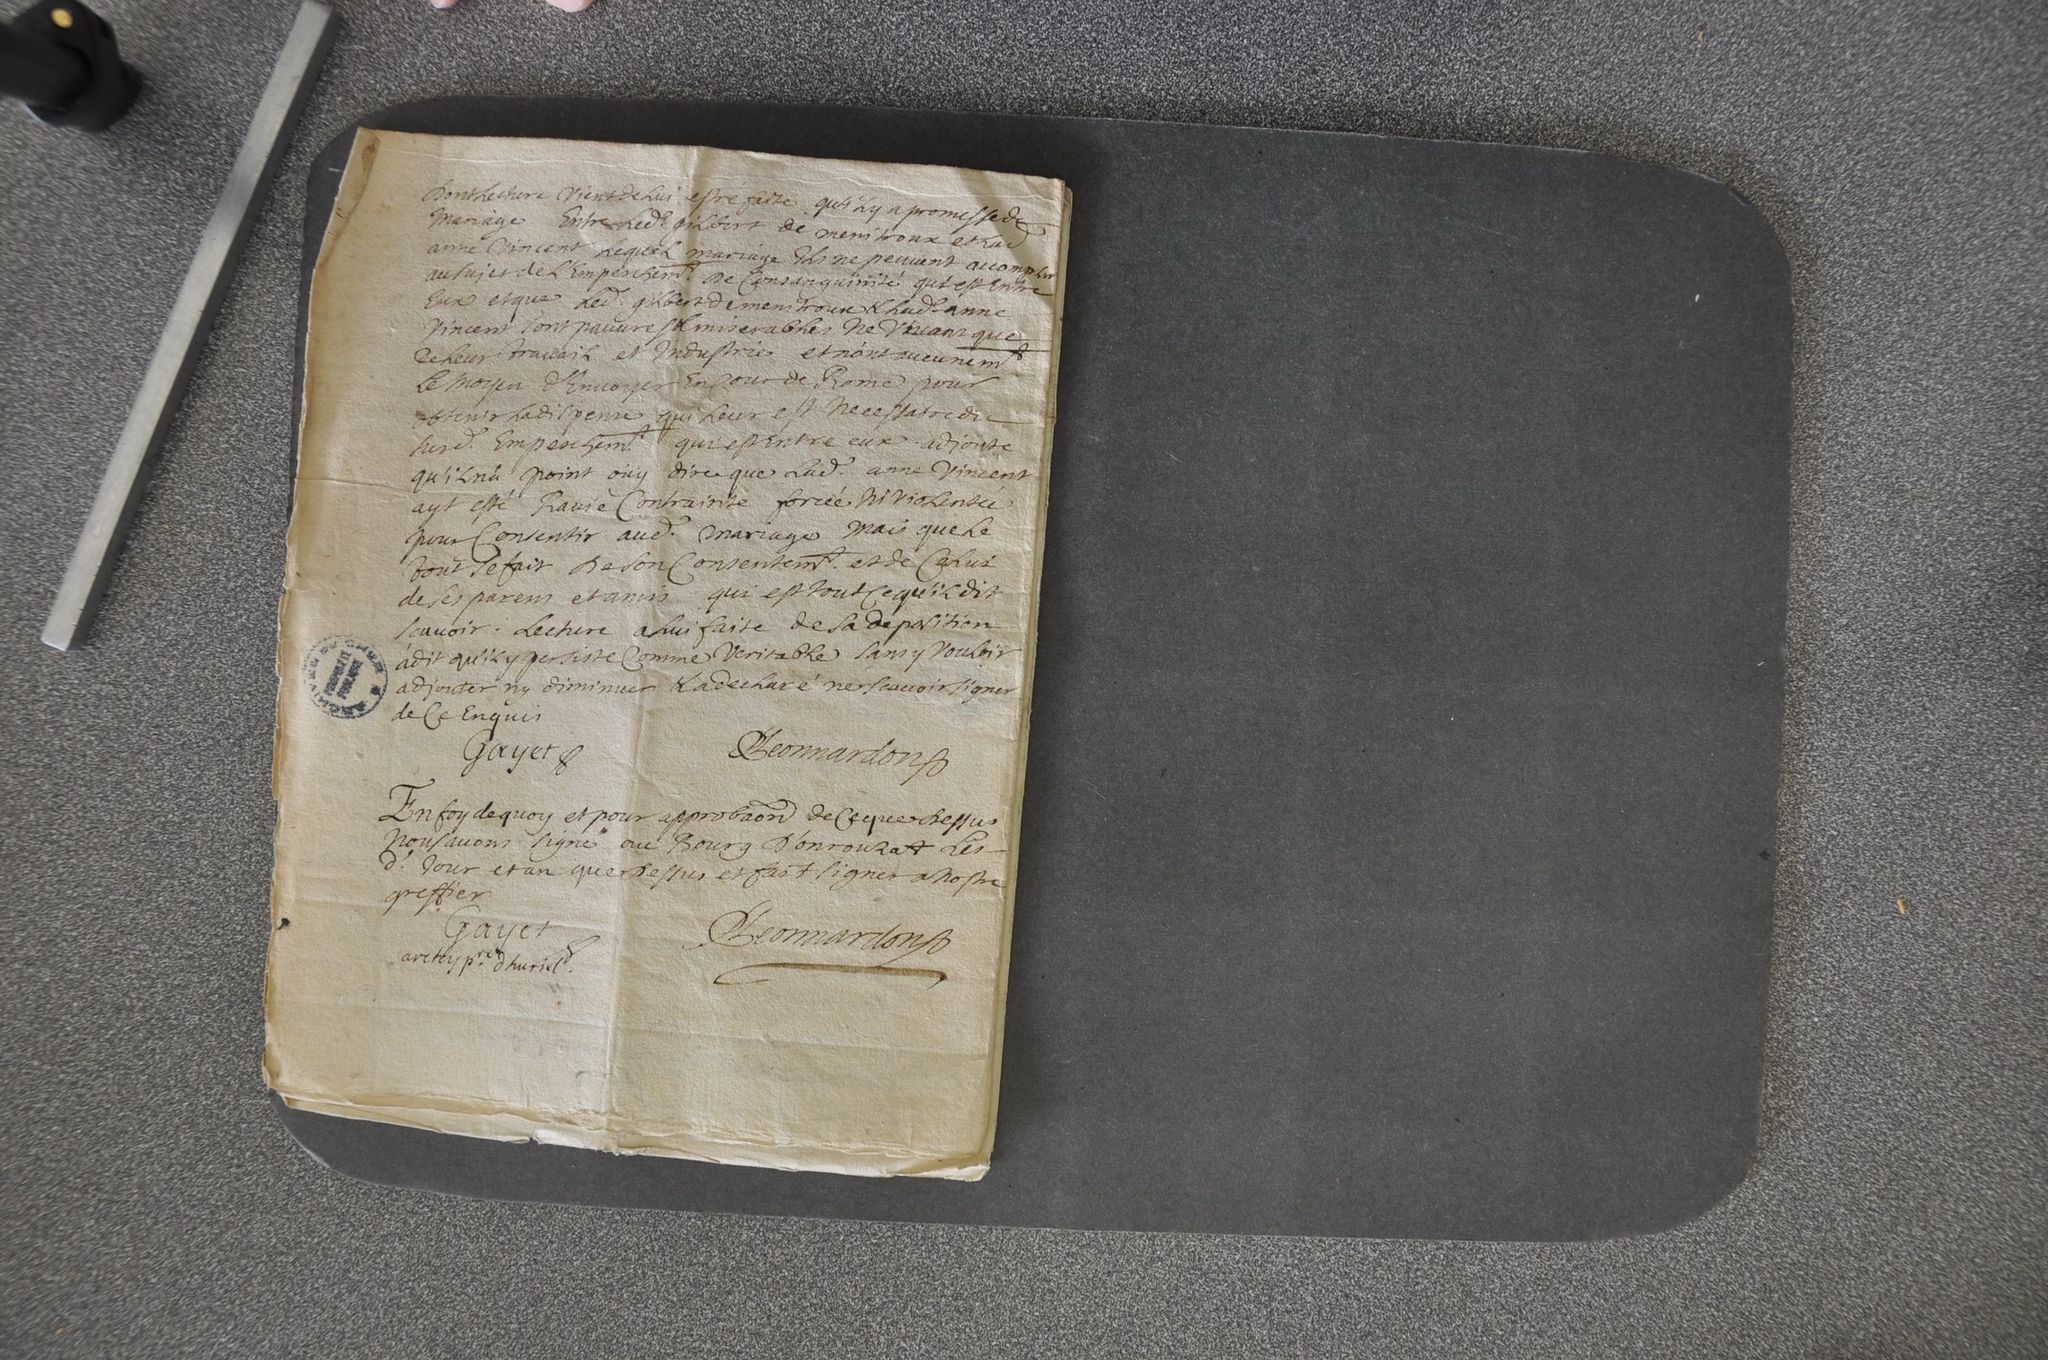 dont lecture vient de lui estre faite quil y a promesse de
mariage Entre led. gilbert de menitroux et lad.
anne Vincent lequel mariage Ils ne peuvent accomplir
au sujet de L'Empeschemt. de Consanguinité qui est Entre
Eux et que Led. gilbert de menitroux & lad. anne
Vincent sont pauvres & miserables ne Vivans que
de leur travail et Industrie et n'ont aucunemt.
le moyen d'Envoyer En Cour de Rome pour
obtenir la dispense qui leur est necessaire du
surd. Empeschemt. qui est Entre eux adjoute
qu'il n'a point ouy dire que Lad. anne Vincent
ayt esté Ravie Contrainte forcée Ni violentée
pour Consentir aud. mariage mais que le
tout se fait de son Consentemt. et de Celui
de ses parens et amis qui est tout Ce qu'il dit
scavoir. Lecture a lui faite de sa deposition
a dit qu'il y persiste Comme Veritable sans y vouloir
adjouter ny diminuer & a declaré ne scavoir signer
de Ce Enquis
Gayet Leonnardon
En foy de quoy et pour approbaõn de Ce que dessus
Nous avons signé au Bourg D'onrouzat Les
d. Jour et an que dessus et fait signer a Nostre
greffier
Gayet Leonnardon
archyptre d'huriel
ARCHIVES